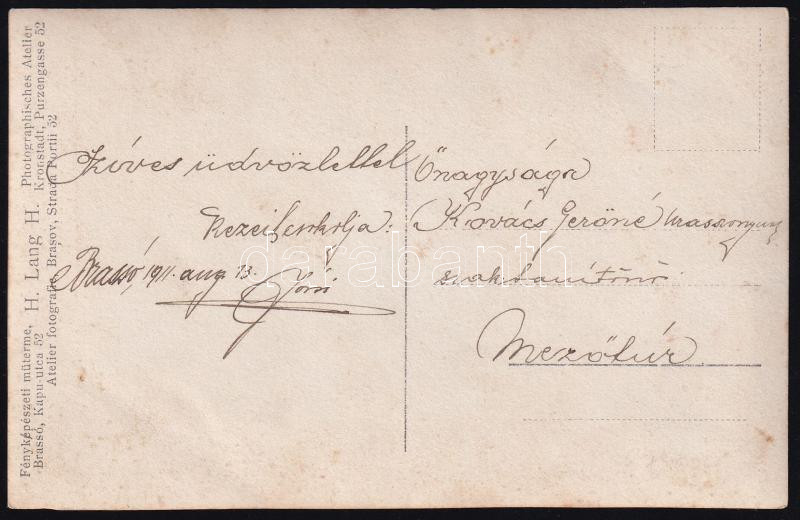 Fényképészeti műterme, H. Lang H. Photographisches Atelier
Brassó, Kapu-utca 52 Kronstadt, Purzengasse 52
Atelier fotografic, Braşov, Strada Portii 52
Szíves üdvözlettel
kezeit csokolja:
Brassó, 1911. aug 13.
Őnagysága
Kovács Gerőné
Mezőtúr
darabanth